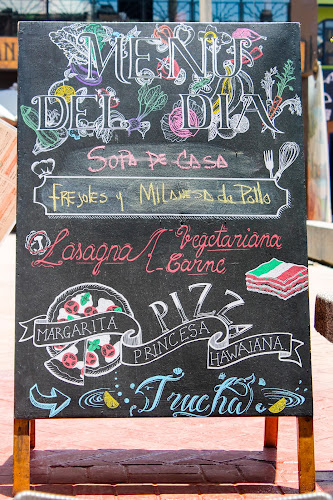 MENU
DEL DIA
SOPA DE CASA
FREJOLES y MILANESA de Pollo
Lasagna Vegetariana
Carne
PIZZ
MARGARITA PRINCESA HAWAIANA
Trucha